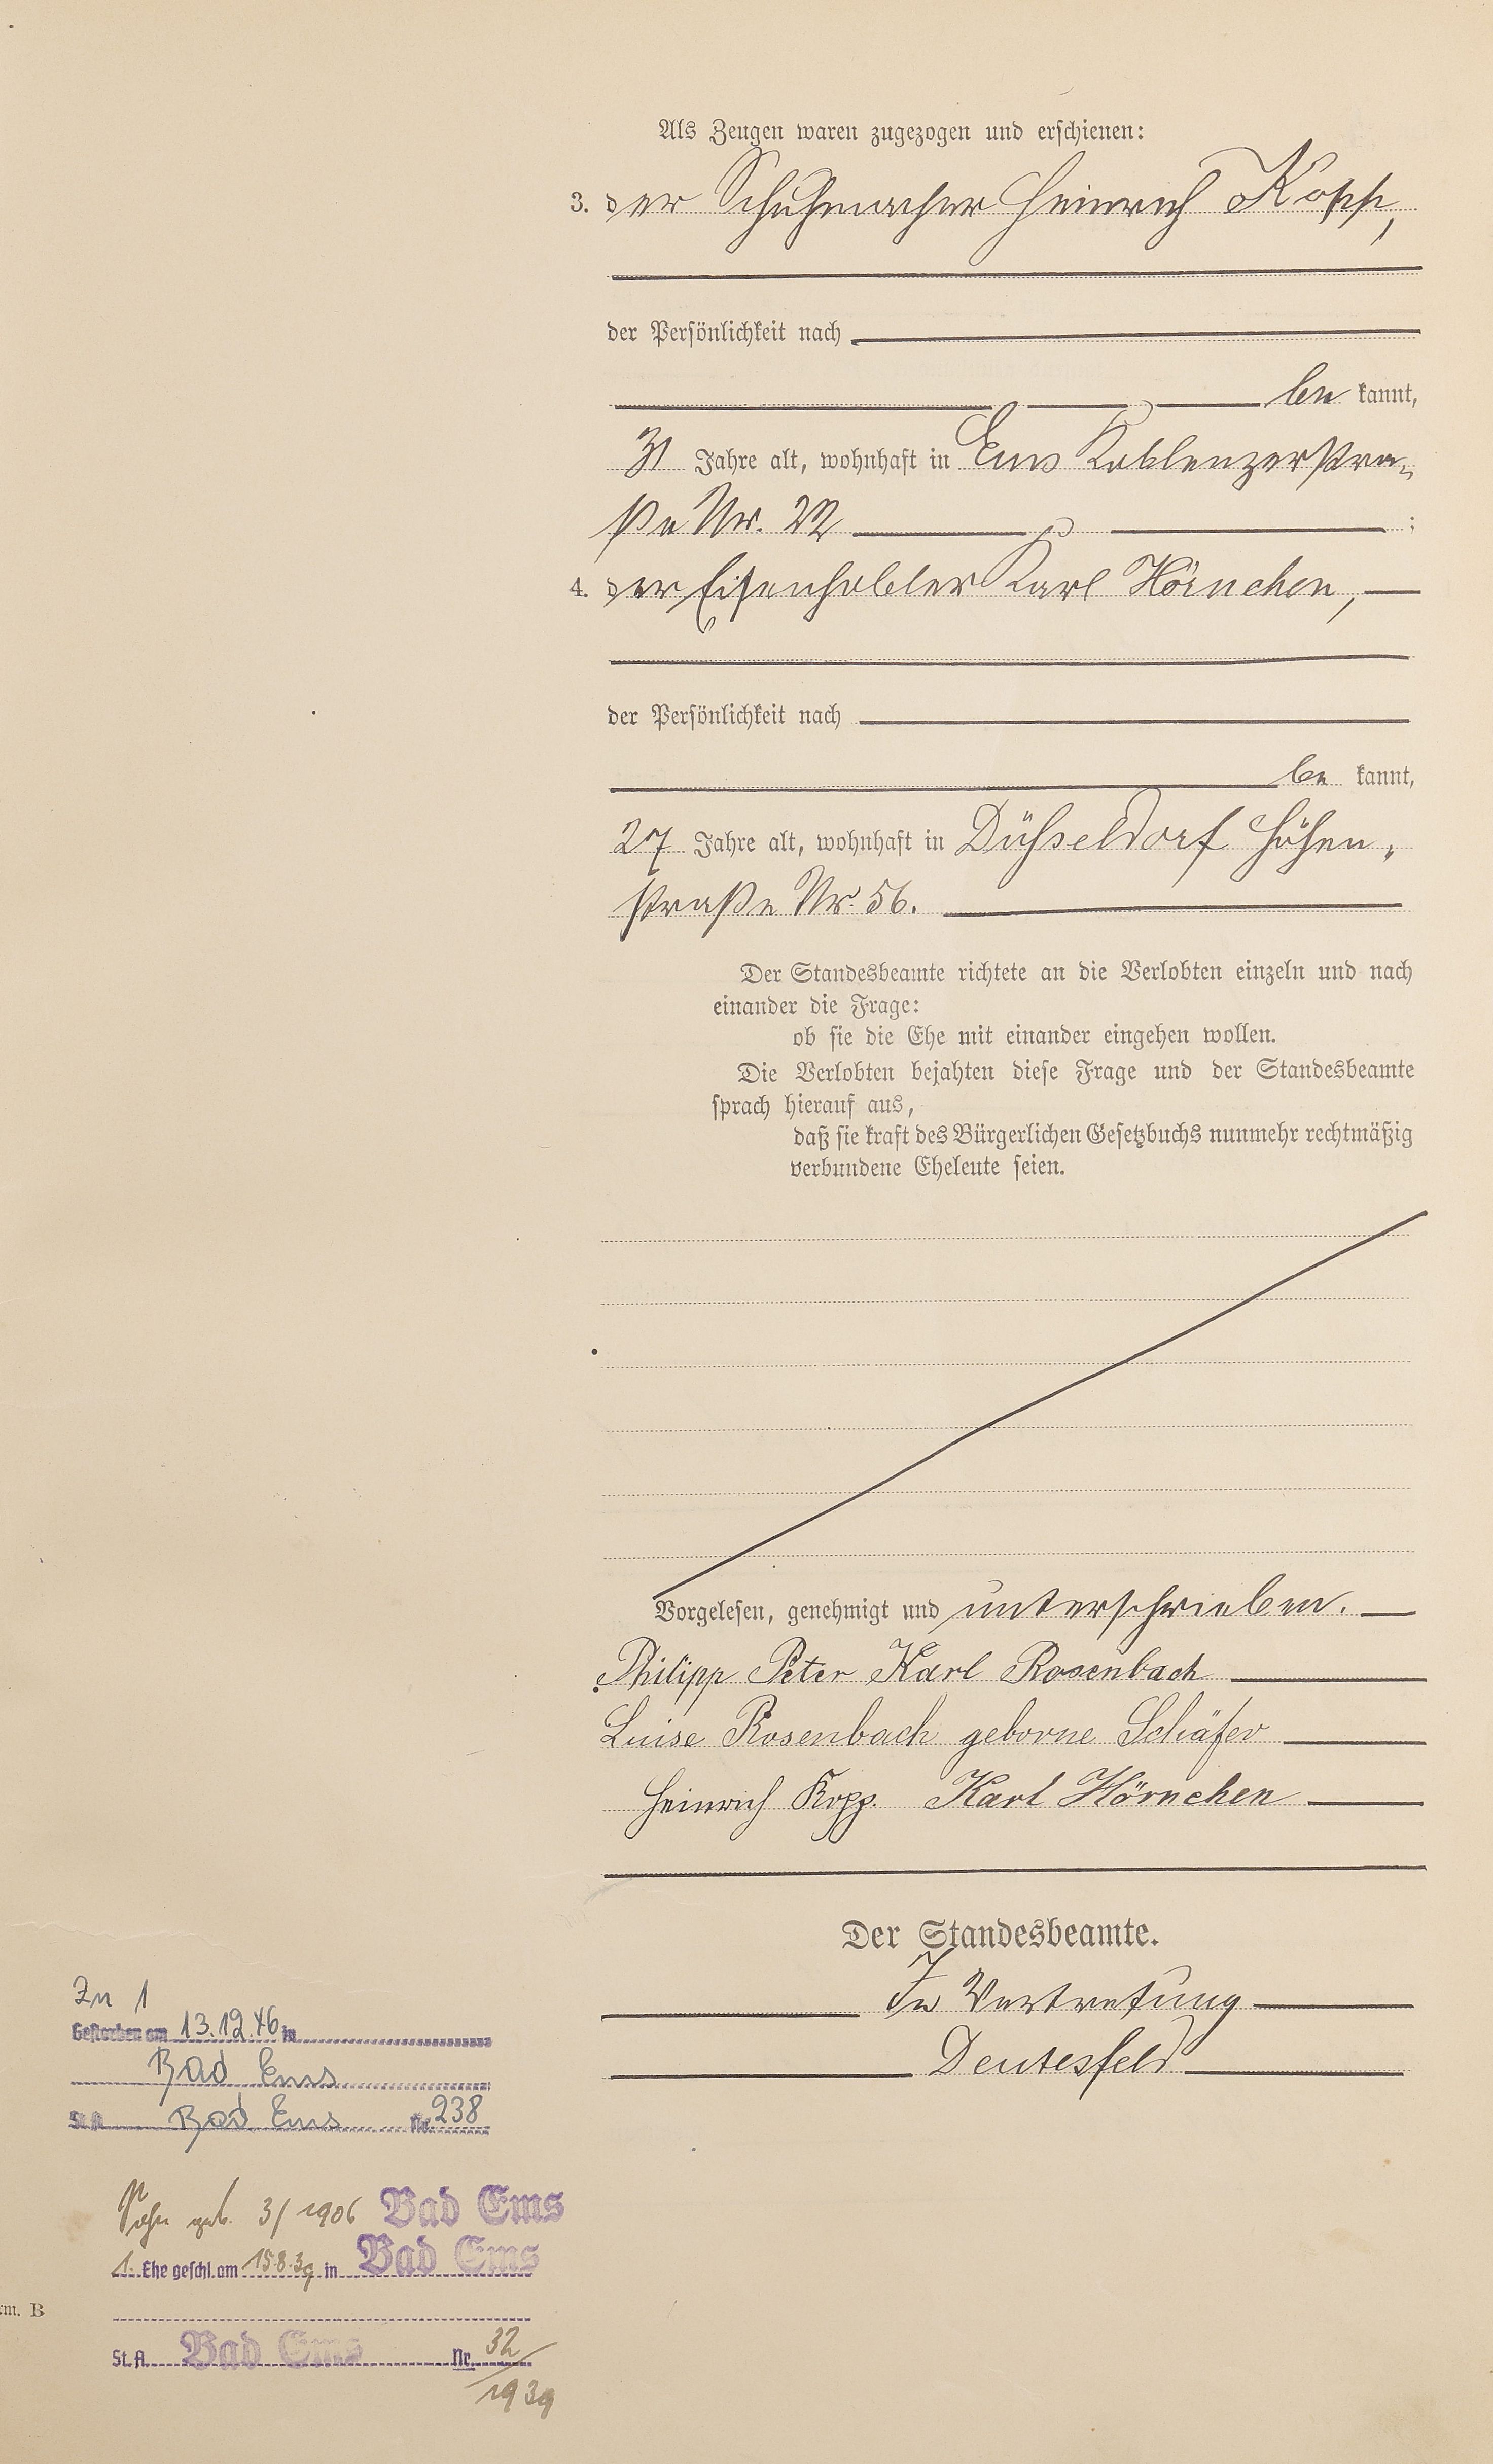 Als Zeugen waren zugezogen und erschienen:
3. der Schuhmacher Heinrich Kopp,
der Persönlichkeit nach
be kannt,
31 Jahre alt, wohnhaft in Ems Koblenzerstra-
ße Nr. 22 ;
4. der Eisenhobler Karl Hörnchen,
der Persönlichkeit nach
be kannt,
27 Jahre alt, wohnhaft in Düsseldorf Höhen-
straße Nr. 56.
Der Standesbeamte richtete an die Verlobten einzeln und nach
einander die Frage:
ob sie die Ehe mit einander eingehen wollen.
Die Verlobten bejahten diese Frage und der Standesbeamte
sprach hierauf aus,
daß sie kraft des Bürgerlichen Gesetzbuchs nunmehr rechtmäßig
verbundene Eheleute seien.
Vorgelesen, genehmigt und unterschrieben.
Philipp Peter Karl Rosenbach
Luise Rosenbach geborne Schäfer
Heinrich Kopp. Karl Hörnchen
Der Standesbeamte.
In Vertretung
Deutesfeld
Zu 1
Gestorben am 13.12.46 in
Bad Ems
St.A. Bad Ems Nr. 238
Sohn geb. 3/1906 Bad Ems
1. Ehe geschl. am 15.8.39 in Bad Ems
St. A. Bad Ems Nr. 32/
1939
rm. B